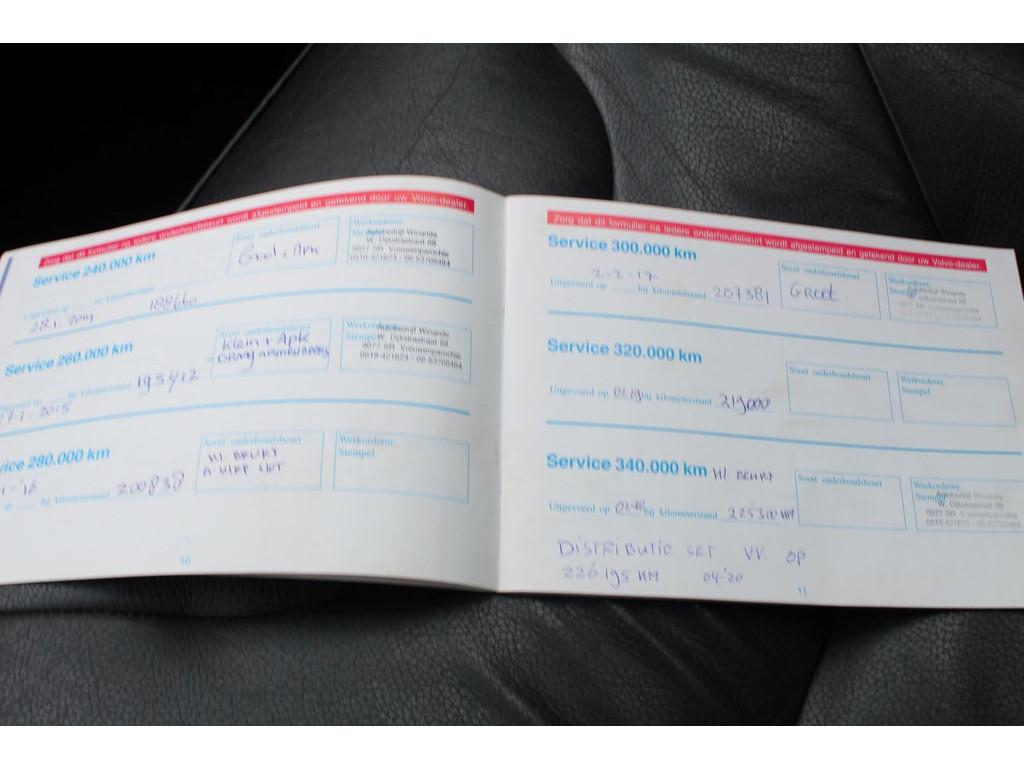 Zorg dat dit formulier na iedere onderhoudsbeurt wordt afgestempeld en getekend door uw Volvo-dealer.
Service 240.000 km
Uitgevoerd op bij kilometerstand
28.1.2014 188660
Soort onderhoudsbeurt
Groot + APK
Werkordernr.
Stempel
Autobedrijf Winanda
W. Dijkstrastraat 68
9077 SR Vrouwenparochie
0518-421623 / 06-53705484
Service 260.000 km
bij kilometerstand 195412
27-1-2015
Soort onderhoudsbeurt
Klein + Apk
Werkordernr.
Stempel
Autobedrijf Winanda
W. Dijkstrastraat 68
9077 SR Vrouwenparochie
0518-421623 / 06-53705484
vice 280.000 km
-'16
op bij kilometerstand 200838
Soort onderhoudsbeurt
KL BEURT
Werkordernr.
Stempel
10
Zorg dat dit formulier na iedere onderhoudsbeurt wordt afgestempeld en getekend door uw Volvo-dealer.
Service 300.000 km
2-2-17
Uitgevoerd op bij kilometerstand 207381
Soort onderhoudsbeurt
Groot.
Werkordernr.
Stempel
Autobedrijf Winanda
W. Dijkstrastraat 68
9077 SR Vrouwenparochie
Service 320.000 km
Uitgevoerd op 02.19 bij kilometerstand 219000
Soort onderhoudsbeurt
Werkordernr.
Stempel
Service 340.000 km KL BEURT
Uitgevoerd op bij kilometerstand 225300 KM
Soort onderhoudsbeurt
Werkordernr.
Stempel
Autobedrijf Winanda
W. Dijkstrastraat 68
9077 SR Vrouwenparochie
0518-421623 / 06-53705484
DISTRIBUTIE SET VV. OP
226195 KM 04-'20
11